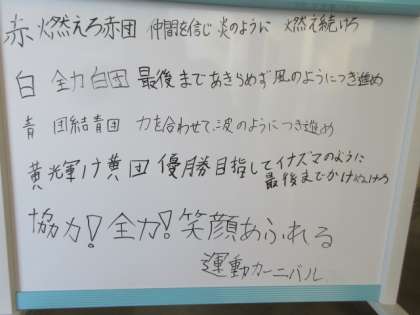 赤 燃えろ赤団 仲間を信じ 炎のように 燃え続けろ
白 全力白団 最後まであきらめず 風のようにつき進め
青 団結青団 力を合わせて、波のようにつき進め
黄 輝け黄団 優勝目指してイナズマのように
最後までかけぬけろ
協力!全力!笑顔あふれる
運動カーニバル